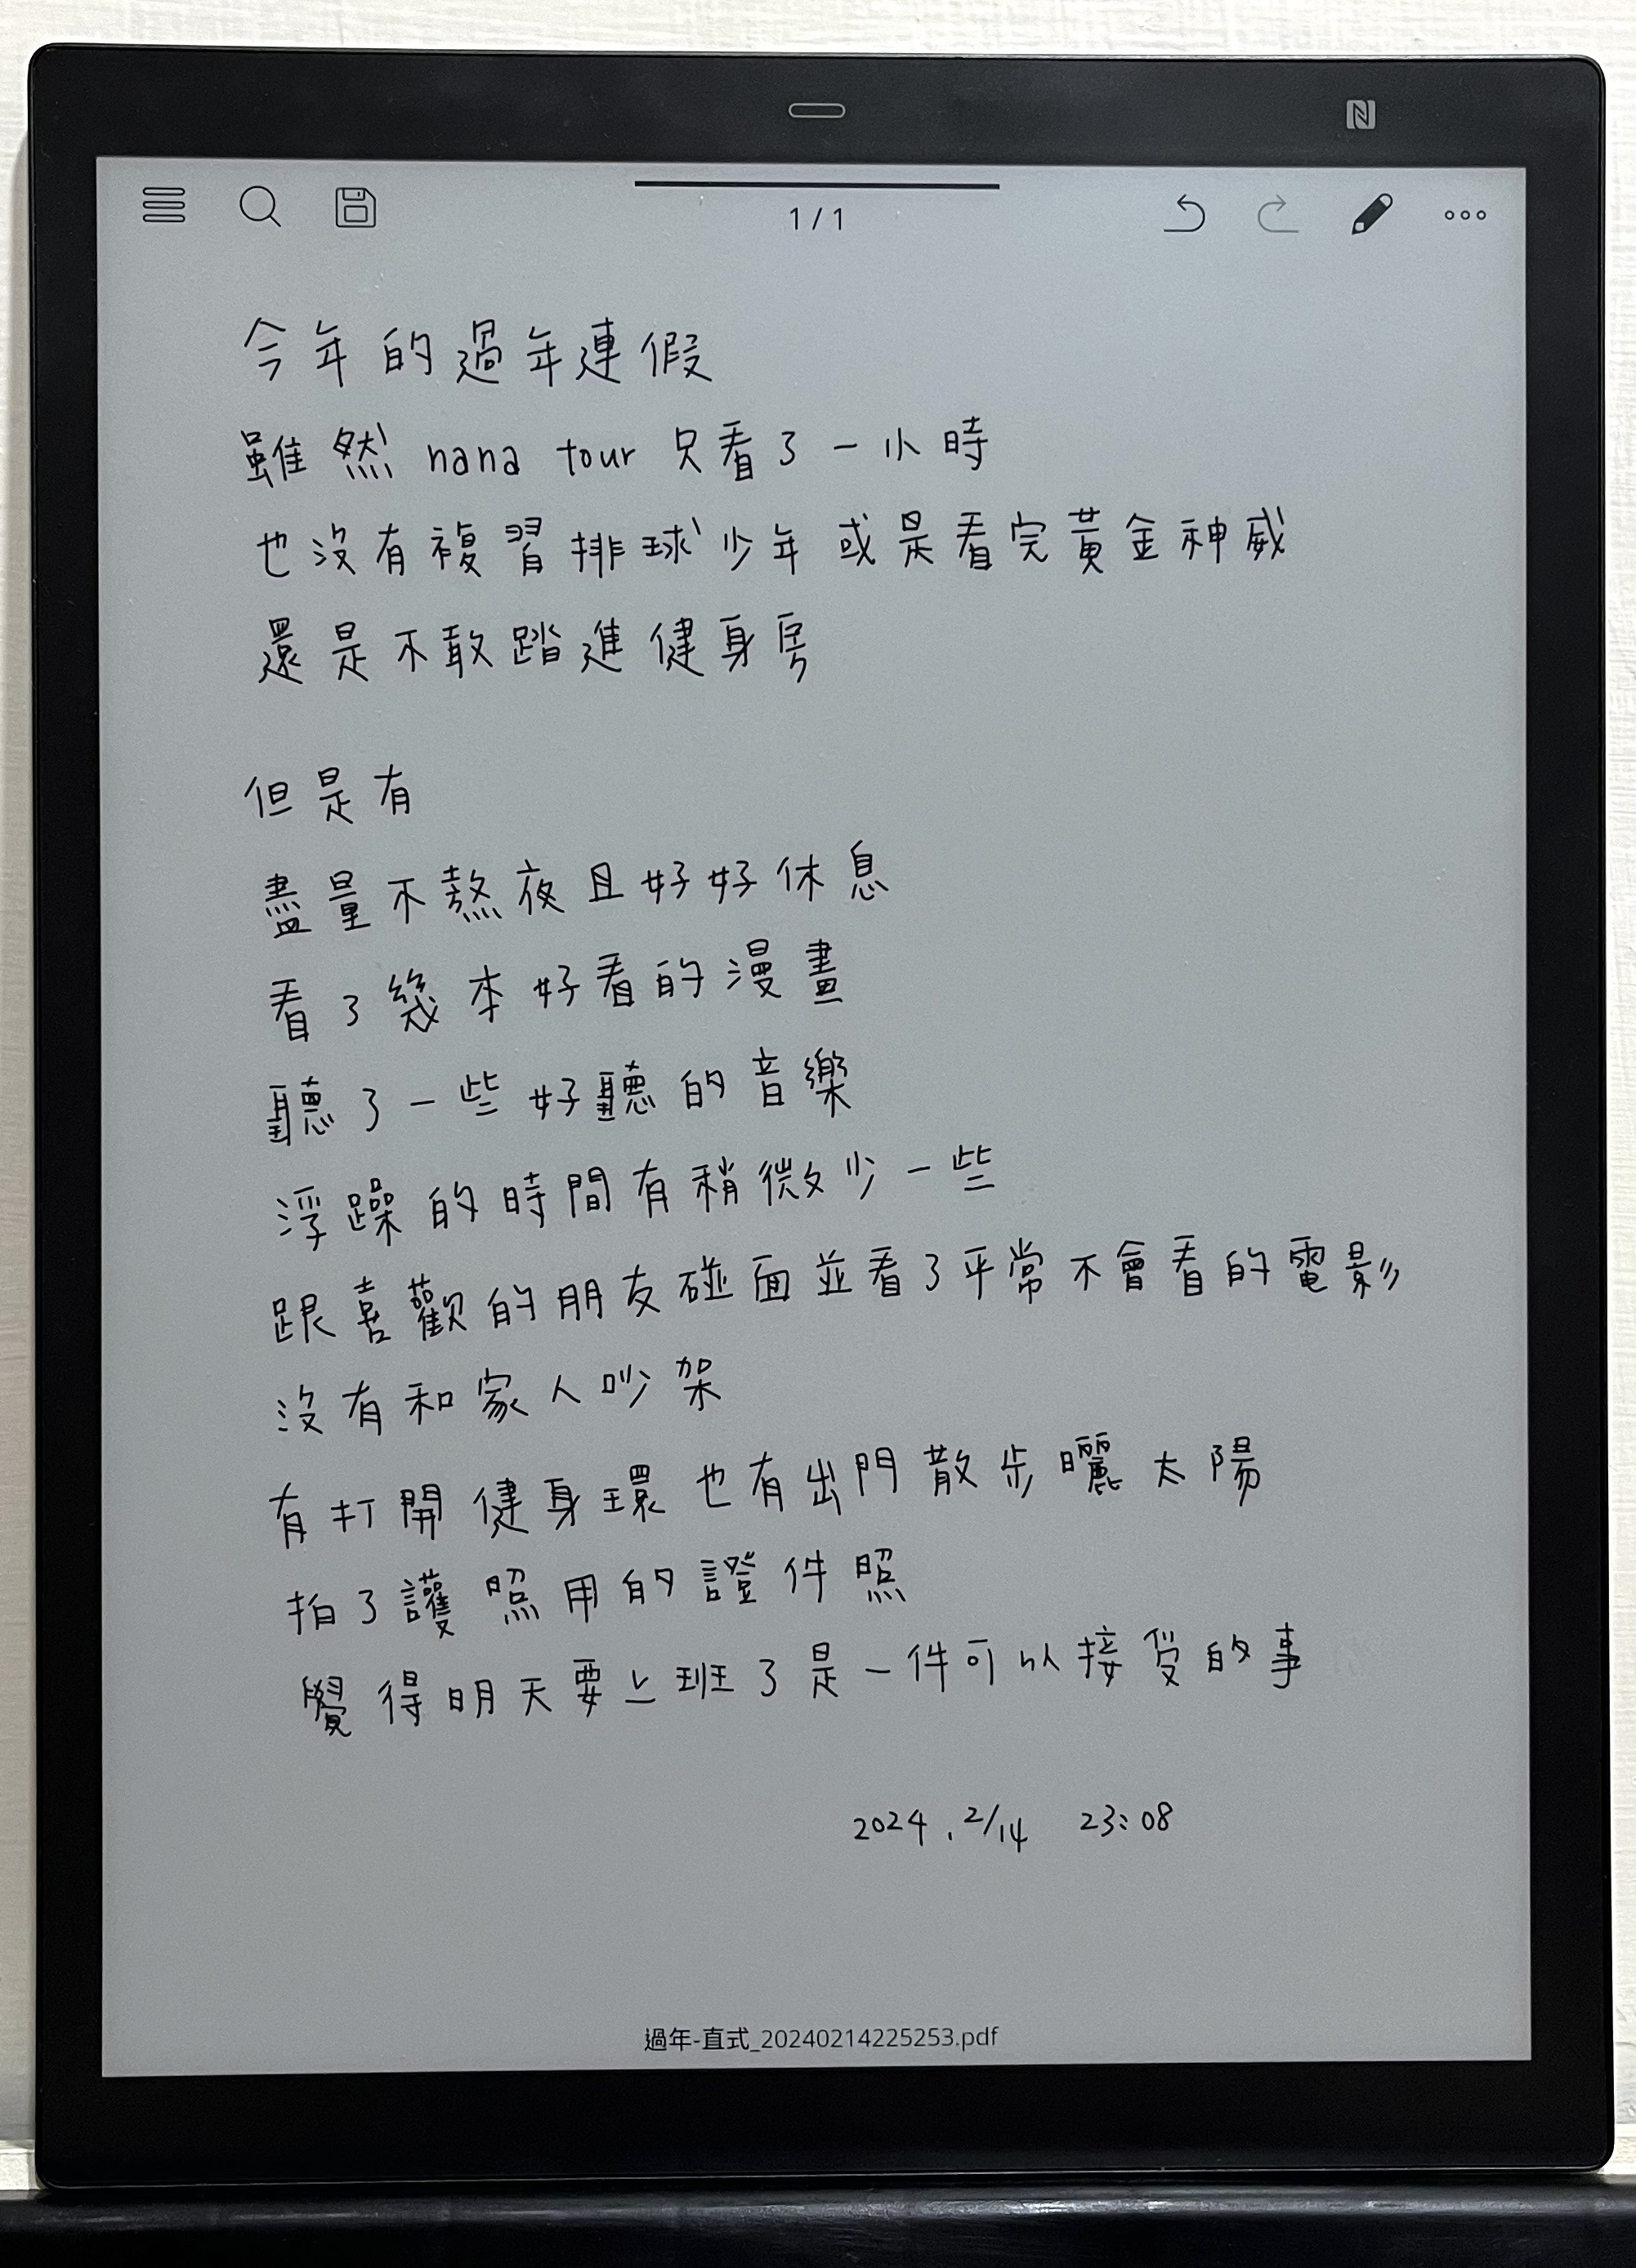 1 / 1
今年的過年連假
雖然 nana tour 只看了一小時
也沒有複習排球少年或是看完黃金神威
還是不敢踏進健身房
但是有
盡量不熬夜且好好休息
看了幾本好看的漫畫
聽了一些好聽的音樂
浮躁的時間有稍微少一些
跟喜歡的朋友碰面並看了平常不會看的電影
沒有和家人吵架
有打開健身環也有出門散步曬太陽
拍了護照用的證件照
覺得明天要上班了是一件可以接受的事
2024.2/14 23:08
過年-直式_20240214225253.pdf